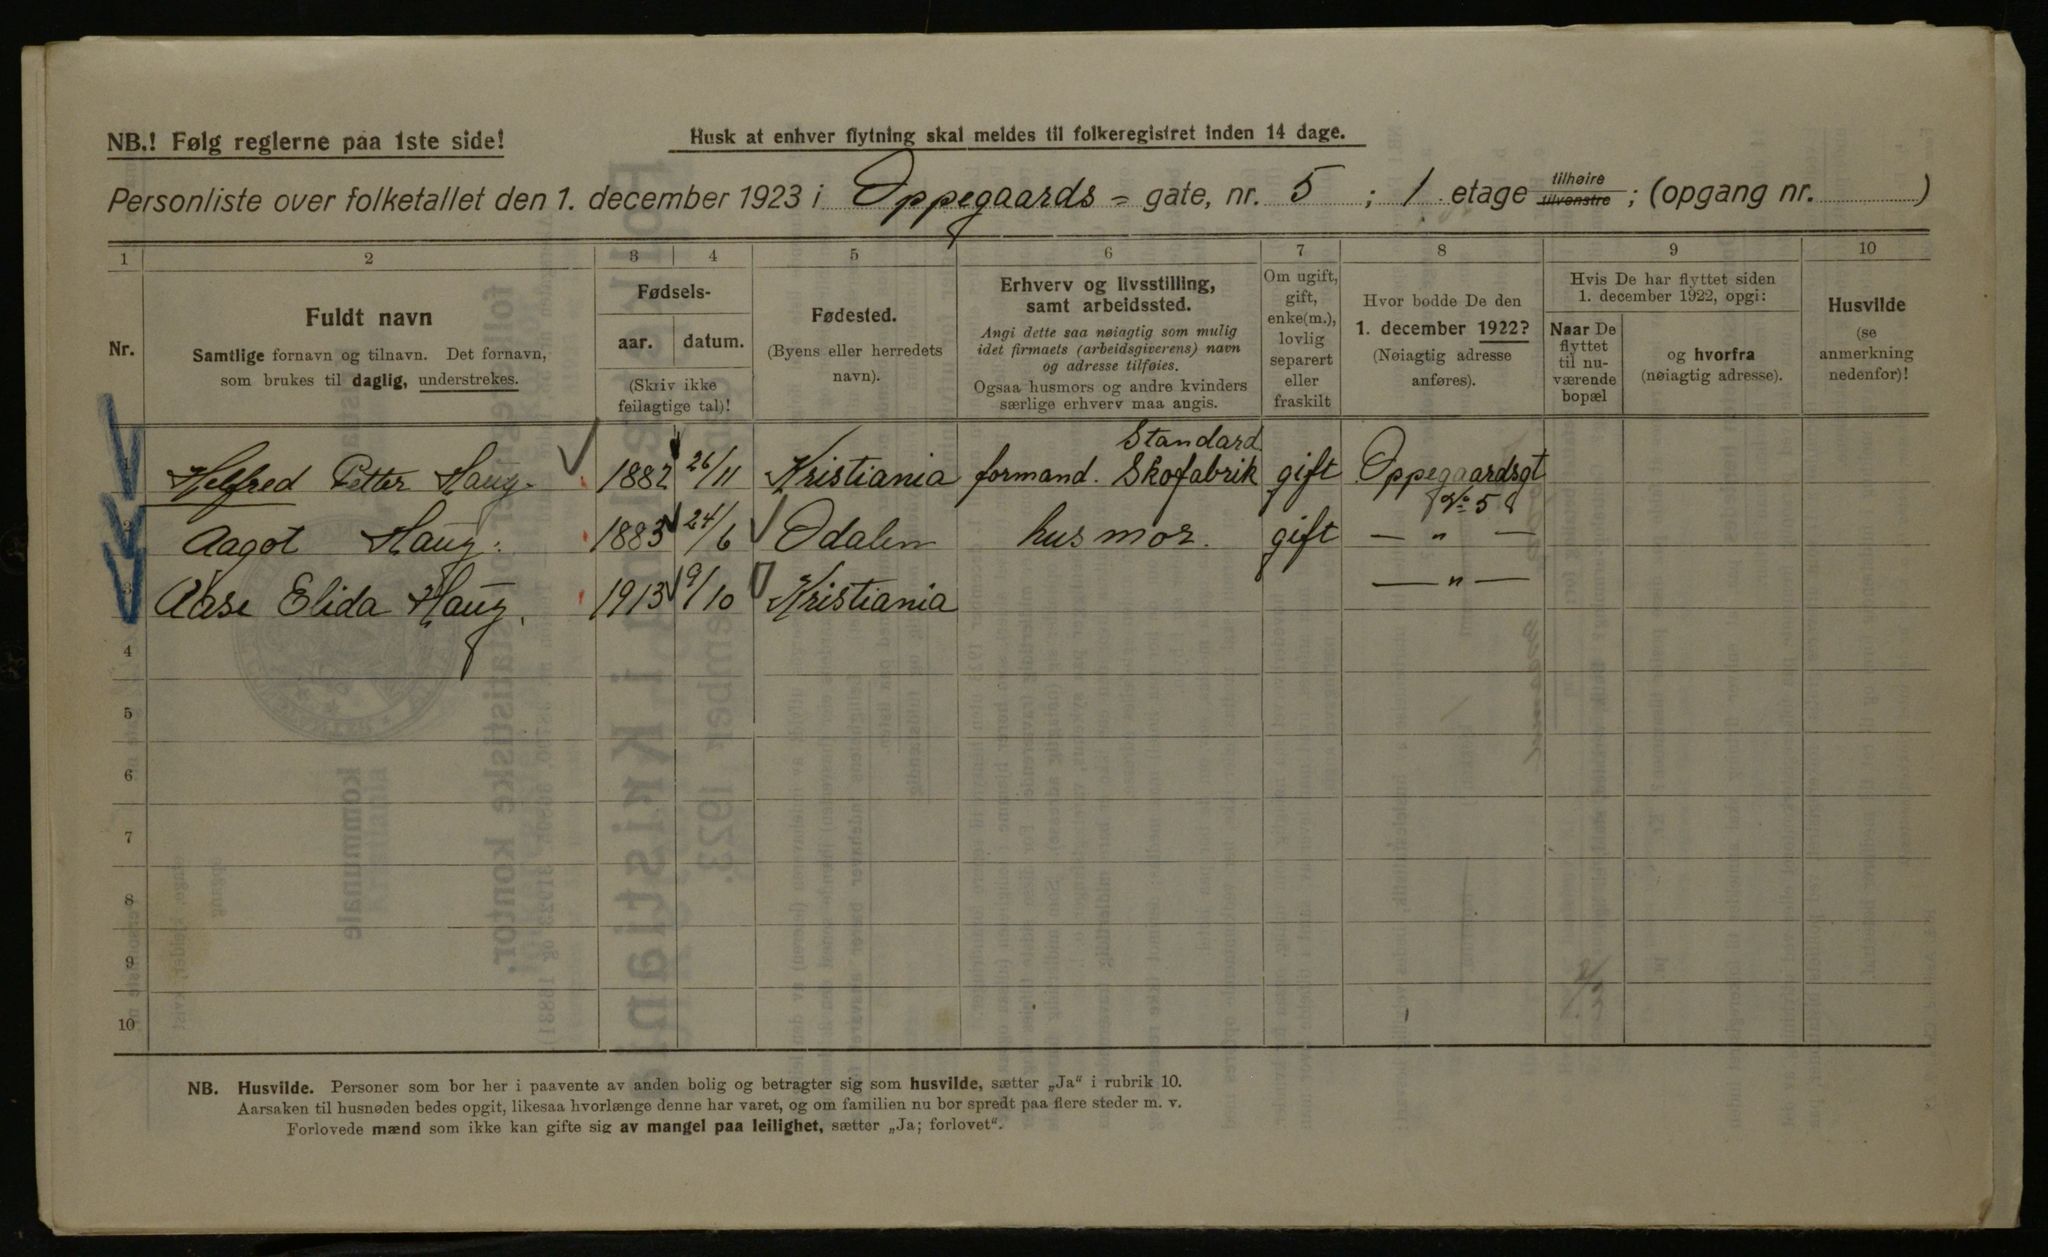 NB.! Følg reglerne paa 1ste side!
Husk at enhver flytning skal meldes til folkeregistret inden 14 dage.
Personliste over folketallet den 1. december 1923 i Oppegaards - gate, nr. 5 ; 1. etage tilhøire tilvenstre ; (opgang nr. )
1 2 3 4 5 6 7 8 9 10
Nr.
Fuldt navn
Samtlige fornavn og tilnavn. Det fornavn,
som brukes til daglig, understrekes.
Fødsels-
aar. datum.
(Skriv ikke
feilagtige tal)!
Fødested.
(Byens eller herredets
navn).
Erhverv og livsstilling,
samt arbeidssted.
Angi dette saa nøiagtig som mulig
idet firmaets (arbeidsgiverens) navn
og adresse tilføies.
Ogsaa husmors og andre kvinders
særlige erhverv maa angis.
Om ugift,
gift,
enke(m.),
lovlig
separert
eller
fraskilt
Hvor bodde De den
1. december 1922?
(Nøiagtig adresse
anføres).
Hvis De har flyttet siden
1. december 1922, opgi:
Naar De
flyttet
til nu-
værende
bopæl
og hvorfra
(nøiagtig adresse).
Husvilde
(se
anmerkning
nedenfor)!
Standard
1 Helfred Petter Haug. 1882 26/11 Kristiania formand. Skofabrik gift Oppegaardsgt
No 5
2 Aagot Haug. 1883 24/6 Odalen husmor. gift — " —
3 Aase Elida Haug. 1913 9/10 Kristiania — " —
4
5
6
7
8
9
10
NB. Husvilde. Personer som bor her i paavente av anden bolig og betragter sig som husvilde, sætter „Ja“ i rubrik 10.
Aarsaken til husnøden bedes opgit, likesaa hvorlænge denne har varet, og om familien nu bor spredt paa flere steder m. v.
Forlovede mænd som ikke kan gifte sig av mangel paa leilighet, sætter „Ja; forlovet“.